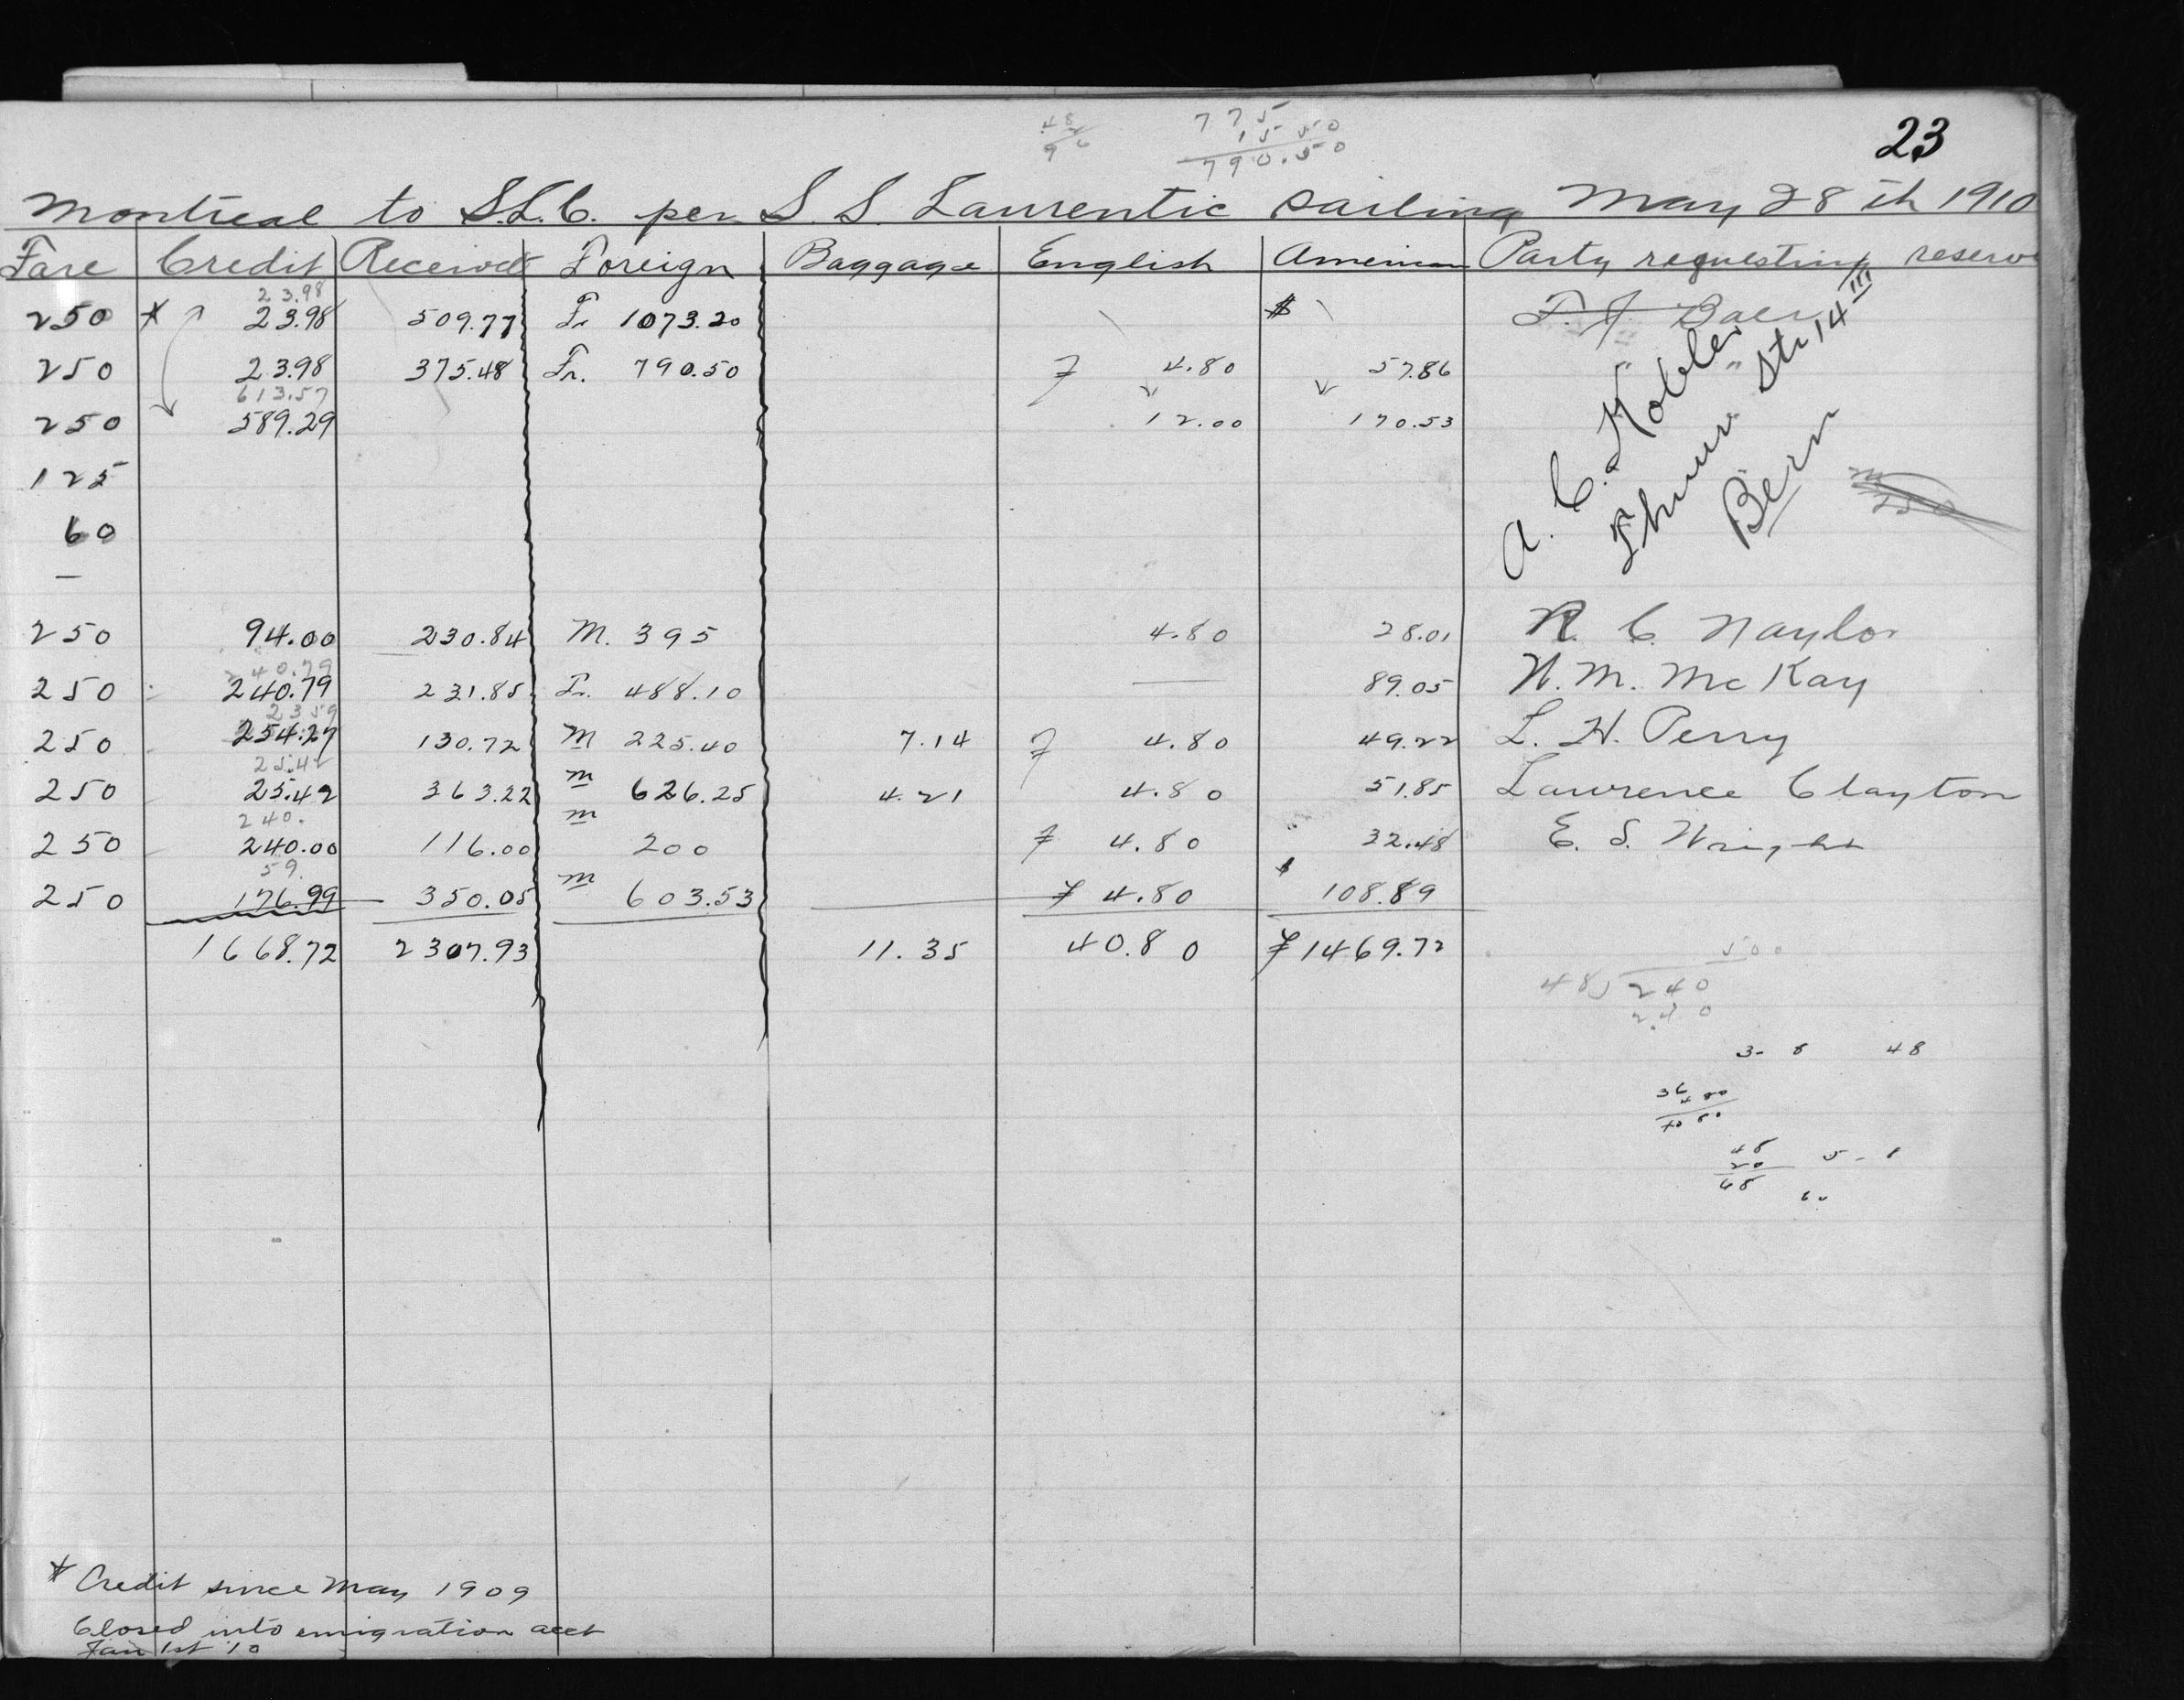 48
96
775
15 50
790.50
23
Montreal to S.L.C. per S S Laurentic sailing May 28th 1910
Fare Credit Received Foreign Baggage English American Party requesting reserv
23.98
250 * 23.98 509.77 Fr 1073.20 $ F. J. Baer
250 23.98 375.48 Fr. 790.50 4.80 57.86
613.57
250 589.29 12.00 170.53
125
60
—
A. C. Kobler
Thunn Str 14 III
Bern
250 94.00 230.84 M. 395 4.80 28.01 R. C. Naylor
40.79
250 240.79 231.85 Fr. 488.10 — 89.05 H. M. McKay
23 59
250 254.27 130.72 M 225.40 7.14 4.80 49.22 L. H. Perry
25.42
250 25.42 363.22 m 626.25 4.21 4.80 51.85 Lawrence Clayton
240.
250 240.00 116.00 m 200 4.80 " 32.48 E. S. Wright
59.
250 176.99 350.05 m 603.53 4.80 $ 108.89
1668.72 2307.93 11.35 40.80 1469.72
500
48) 240
240
3- 8 48
36
4 80
40 80
48
20
68
5 - 1
* Credit since May 1909
Closed into emigration acct
Jan 1st '10